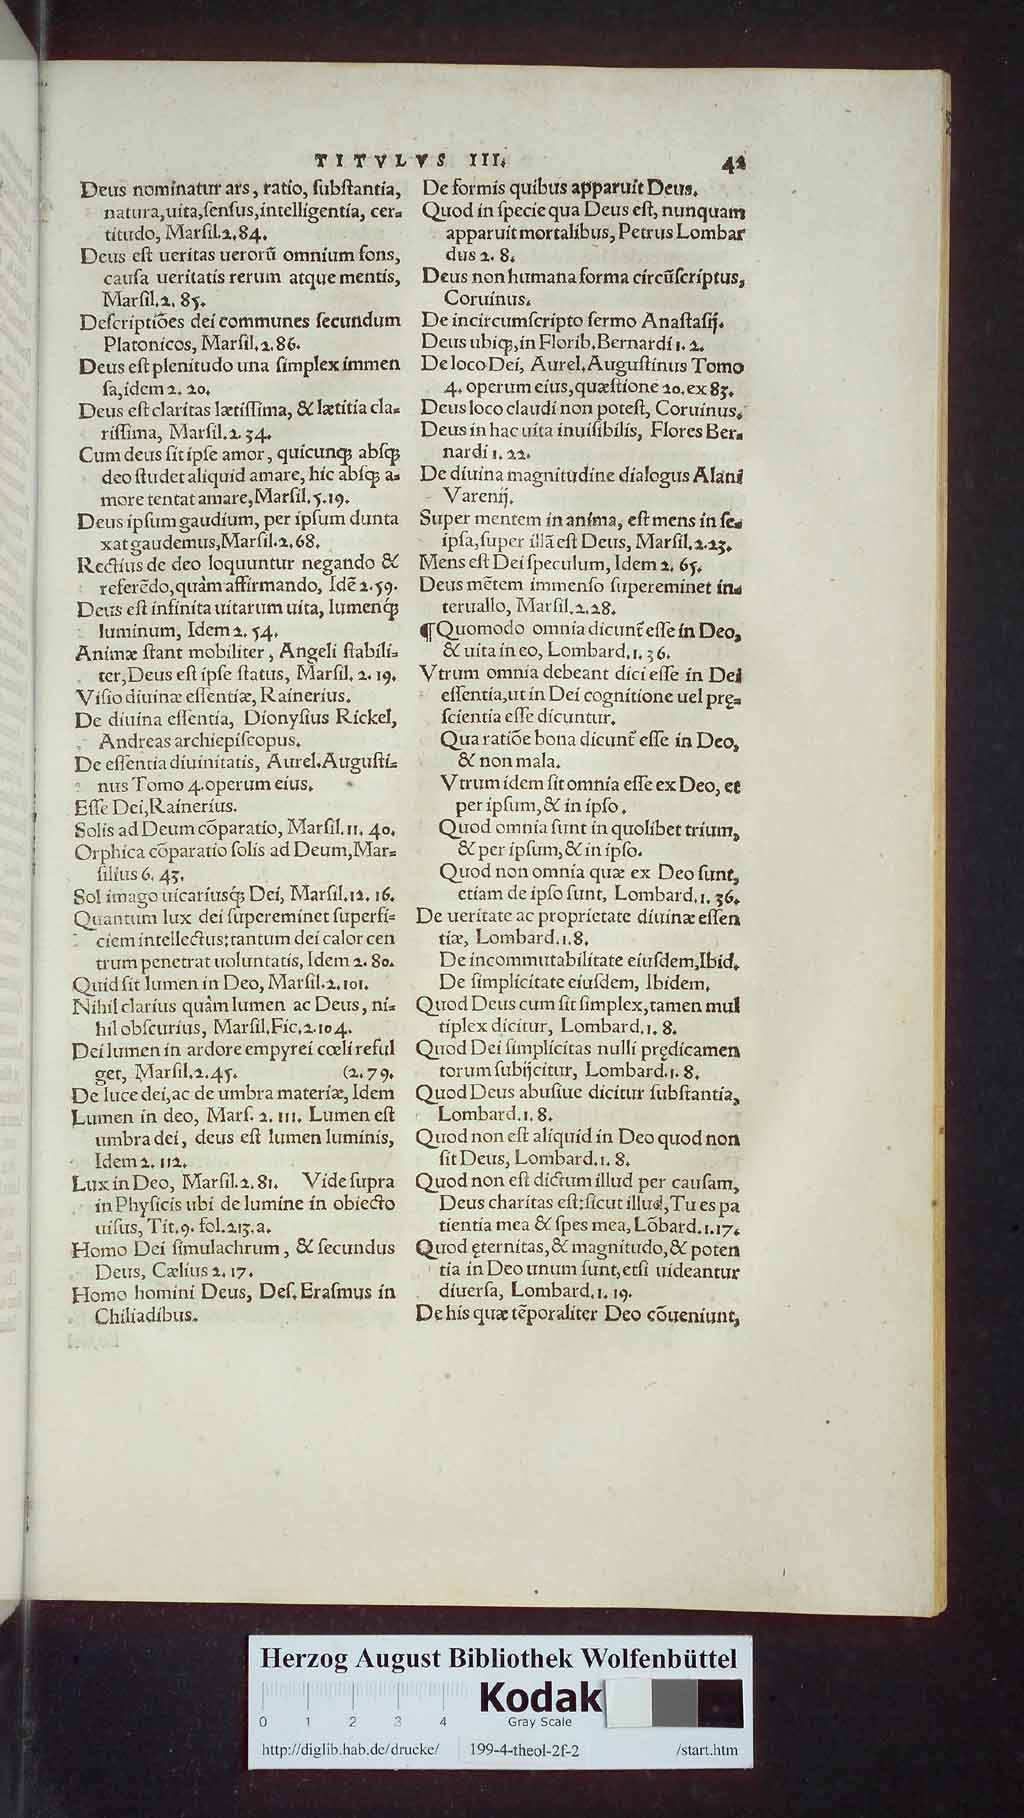 TITVLVS III.
42
Deus nominatur ars, ratio, ſubſtantia,
natura, uita, ſenſus, intelligentia, cer=
titudo, Marſil.2.84.
Deus eſt ueritas uerorũ omnium fons,
cauſa ueritatis rerum atque mentis,
Marſil.2. 85.
Deſcriptiões dei communes ſecundum
Platonicos, Marſil.2.86.
Deus eſt plenitudo una ſimplex immen
ſa, idem 2. 20.
Deus eſt claritas lætiſſima, & lætitia cla=
riſſima, Marſil.2.34.
Cum deus ſit ipſe amor, quicunqꝫ abſqꝫ
deo ſtudet aliquid amare, hic abſqꝫ a=
more tentat amare, Marſil.5.19.
Deus ipſum gaudium, per ipſum dunta
xat gaudemus, Marſil.2.68.
Rectius de deo loquuntur negando &
referẽdo, quàm affirmando, Idẽ 2.59.
Deus eſt infinita uitarum uita, lumenq́ꝫ
luminum, Idem 2. 54.
Animæ ſtant mobiliter, Angeli ſtabili=
ter, Deus eſt ipſe ſtatus, Marſil. 2. 19.
Viſio diuinæ eſſentiæ, Rainerius.
De diuina eſſentia, Dionyſius Rickel,
Andreas archiepiſcopus.
De eſſentia diuinitatis, Aurel. Auguſti=
nus Tomo 4. operum eius.
Eſſe Dei, Rainerius.
Solis ad Deum cõparatio, Marſil. 11. 40.
Orphica cõparatio ſolis ad Deum, Mar=
ſilius 6. 43.
Sol imago uicariusq́ꝫ Dei, Marſil.12. 16.
Quantum lux dei ſupereminet ſuperfi=
ciem intellectus: tantum dei calor cen
trum penetrat uoluntatis, Idem 2. 80.
Quid ſit lumen in Deo, Marſil.2.101.
Nihil clarius quàm lumen ac Deus, ni=
hil obſcurius, Marſil. Fic. 2.104.
Dei lumen in ardore empyrei cœli reful
get, Marſil.2.45. (2.79.
De luce dei, ac de umbra materiæ, Idem
Lumen in deo, Marſ. 2. 111. Lumen eſt
umbra dei, deus eſt lumen luminis,
Idem 2. 112.
Lux in Deo, Marſil.2.81. Vide ſupra
in Phyſicis ubi de lumine in obiecto
uiſus, Tit.9. fol.213.a.
Homo Dei ſimulachrum, & ſecundus
Deus, Cælius 2. 17.
Homo homini Deus, Deſ. Eraſmus in
Chiliadibus.
De formis quibus apparuit Deus.
Quod in ſpecie qua Deus eſt, nunquam
apparuit mortalibus, Petrus Lombar
dus 2. 8.
Deus non humana forma circũſcriptus,
Coruinus.
De incircumſcripto ſermo Anaſtaſij.
Deus ubiqꝫ, in Florib. Bernardi 1. 2.
De loco Dei, Aurel. Auguſtinus Tomo
4. operum eius, quæſtione 20. ex 83.
Deus loco claudi non poteſt, Coruinus.
Deus in hac uita inuiſibilis, Flores Ber=
nardi 1. 22.
De diuina magnitudine dialogus Alani
Varenij.
Super mentem in anima, eſt mens in ſe=
ipſa, ſuper illã eſt Deus, Marſil.2.23.
Mens eſt Dei ſpeculum, Idem 2. 65.
Deus mẽtem immenſo ſupereminet in=
teruallo, Marſil.2.28.
¶ Quomodo omnia dicunt̃ eſſe in Deo,
& uita in eo, Lombard.1. 36.
Vtrum omnia debeant dici eſſe in Dei
eſſentia, ut in Dei cognitione uel prę=
ſcientia eſſe dicuntur.
Qua ratiõe bona dicunt̃ eſſe in Deo,
& non mala.
Vtrum idem ſit omnia eſſe ex Deo, et
per ipſum, & in ipſo.
Quod omnia ſunt in quolibet trium,
& per ipſum, & in ipſo.
Quod non omnia quæ ex Deo ſunt,
etiam de ipſo ſunt, Lombard.1. 36.
De ueritate ac proprietate diuinæ eſſen
tiæ, Lombard.1.8.
De incommutabilitate eiuſdem, Ibid.
De ſimplicitate eiuſdem, Ibidem.
Quod Deus cum ſit ſimplex, tamen mul
tiplex dicitur, Lombard.1. 8.
Quod Dei ſimplicitas nulli prędicamen
torum ſubijcitur, Lombard.1. 8.
Quod Deus abuſiue dicitur ſubſtantia,
Lombard.1. 8.
Quod non eſt aliquid in Deo quod non
ſit Deus, Lombard.1. 8.
Quod non eſt dictum illud per cauſam,
Deus charitas eſt: ſicut illud, Tu es pa
tientia mea & ſpes mea, Lõbard.1.17.
Quod ęternitas, & magnitudo, & poten
tia in Deo unum ſunt, etſi uideantur
diuerſa, Lombard.1. 19.
De his quæ tẽporaliter Deo cõueniunt,
Herzog August Bibliothek Wolfenbüttel
Kodak
Gray Scale
0 1 2 3 4
http://diglib.hab.de/drucke/ 199-4-theol-2f-2 /start.htm